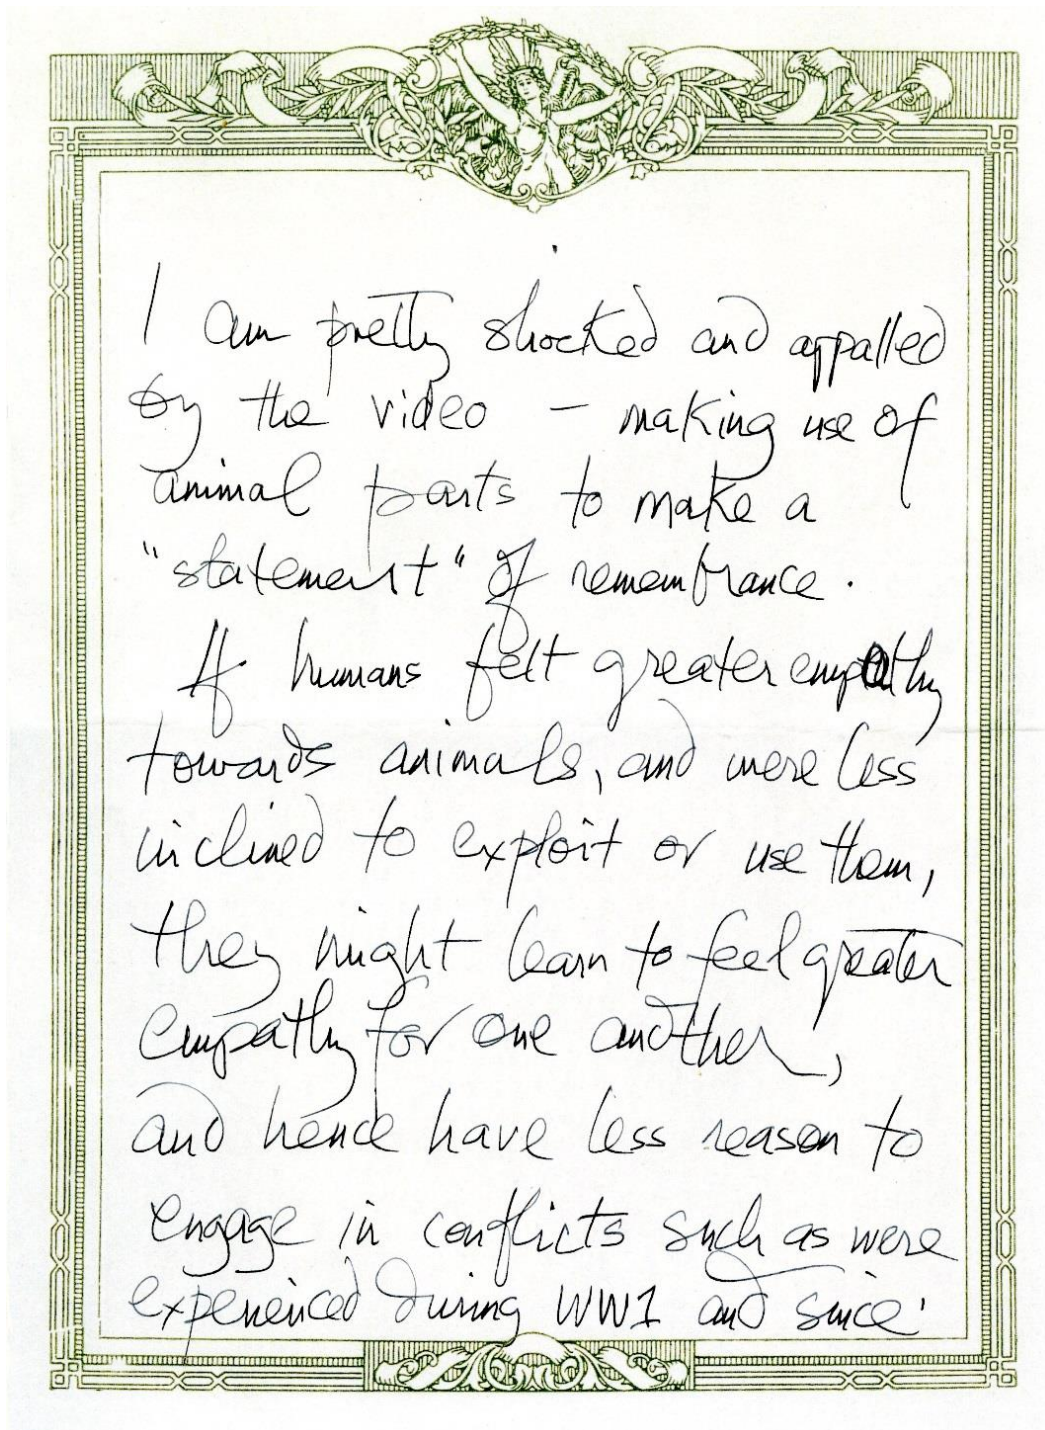 I am pretty shocked and appalled
by the video – making use of
animal parts to make a
"statement" of remembrance.
If humans felt greater empathy
towards animals, and were less
inclined to exploit or use them,
they might learn to feel greater
empathy for one another,
and hence have less reason to
engage in conflicts such as were
experienced during WW1 and since.